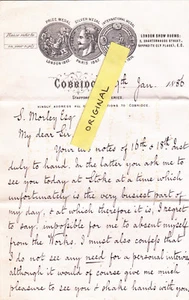 PRIZE MEDAL
SILVER MEDAL
INTERNATIONAL MEDAL
LONDON 1851
PARIS 1855
LONDON SHOW ROOMS,
OPPOSITE ELY PLACE, E.C.
ORIGINAL
COBRIDGE
Jan. 1886
S. Morley Esq
My dear Sir
Your notes of 16th & 18th Inst
duly to hand. In the latter you ask me to
see you today at Stoke at a time which
unfortunately is the very busiest part of
my day, & at which therefore it is, I regret
to say, impossible for me to absent myself
from the Works. I must also confess that
I do not see any need for a personal interview
although it would of course give me much
pleasure to see you & shake hands with you